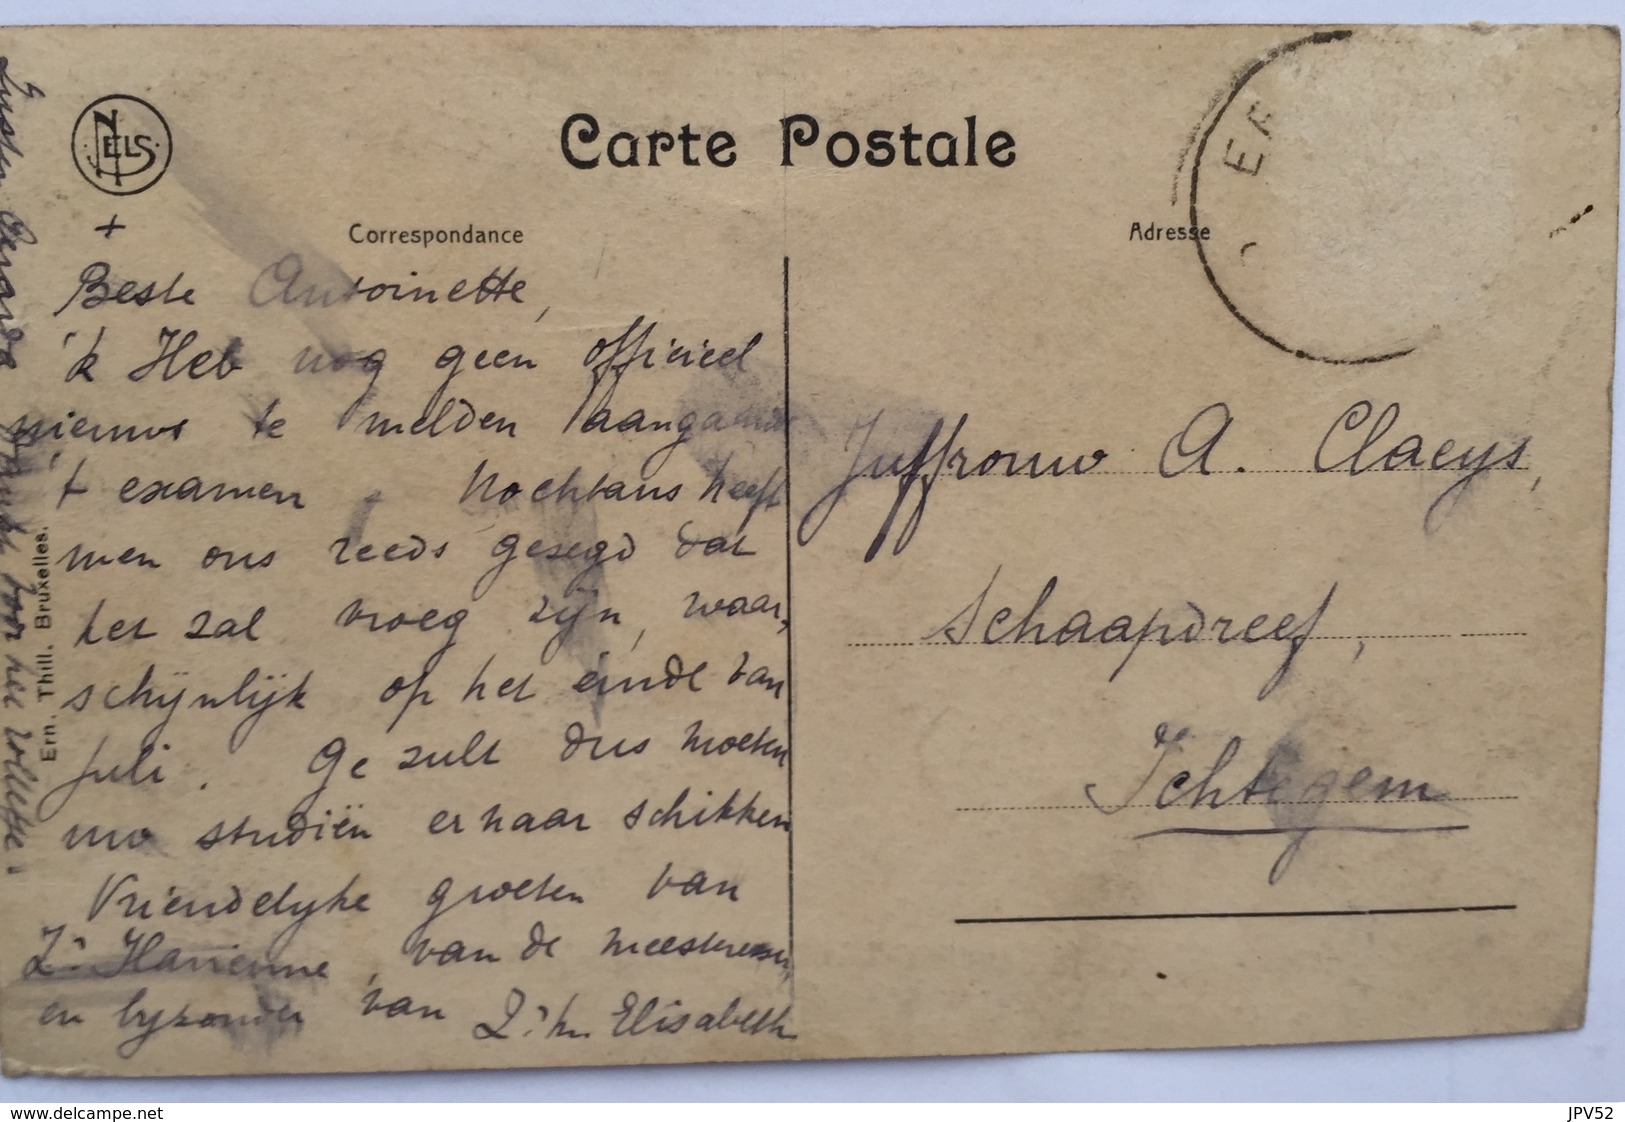 NELS
Carte Postale
Correspondance
Adresse
+
Beste Antoinette,
'k Heb nog geen officieel
nieuws te melden aangaande
't examen. Nochtans heeft
men ons reeds gezegd dat
het zal vroeg zijn, waar,
schijnlijk op het einde van
Juli. Ge zult dus moeten
uw studiën ernaar schikken
Vriendelyke groeten van
Zr Marienne, van de meesteressen,
en byzonder van Zr M. Elisabeth
Juffrouw A. Claeys,
Schaapdreef,
Ichtegem
Zuster Gerarda voor het
Ern. Thill. Bruxelles.
EER
www.delcampe.net
JPV52